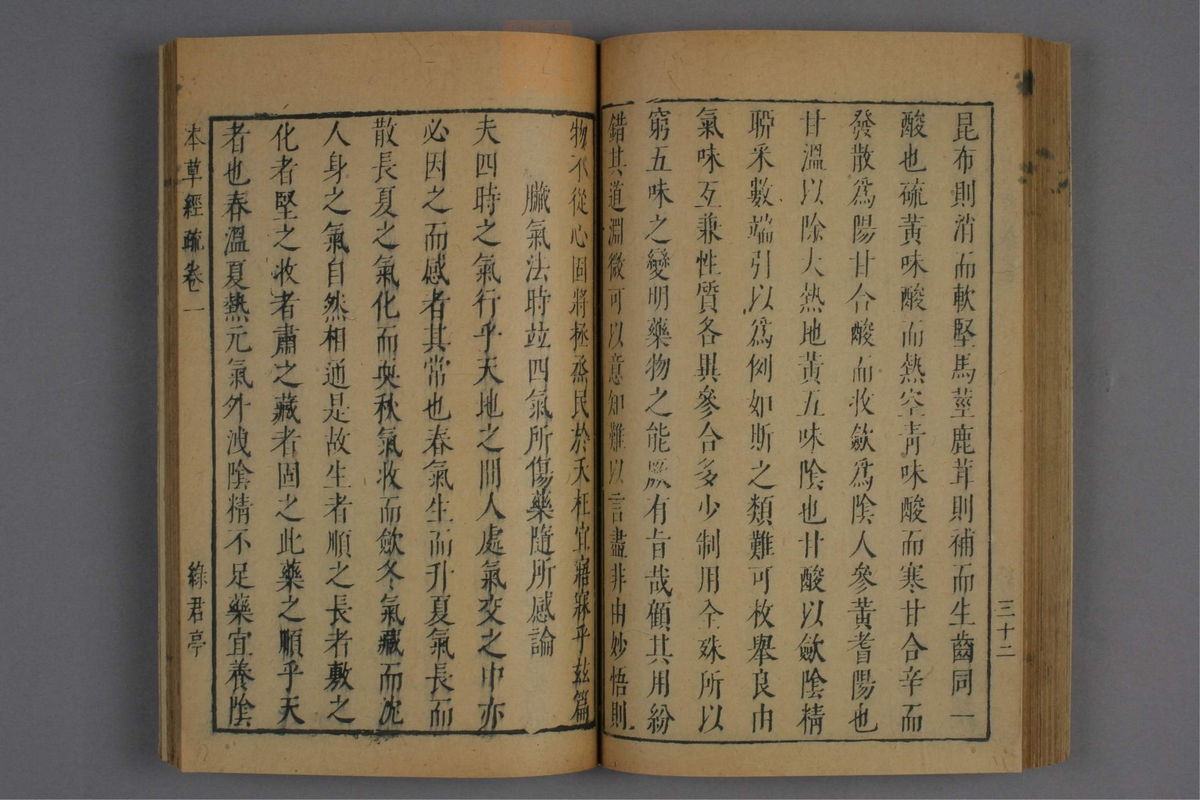 昆布則消而軟堅馬莖鹿茸則補而生齒同一
酸也硫黃味酸而熱空青味酸而寒甘合辛而
發散爲陽甘合酸而收歛爲陰人參黃耆陽也
甘溫以除大熱地黃五味陰也甘酸以歛陰精
聊采數端引以爲例如斯之類難可枚舉良由
氣味互兼性質各異參合多少制用全殊所以
窮五味之變明藥物之能厥有旨哉顧其用紛
錯其道淵微可以意知難以言盡非由妙悟則
三十二
物不從心固將拯烝民於夭枉宜寤寐乎玆篇
臟氣法時竝四氣所傷藥隨所感論
夫四時之氣行乎天地之間人處氣交之中亦
必因之而感者其常也春氣生而升夏氣長而
散長夏之氣化而耎秋氣收而歛冬氣藏而沈
人身之氣自然相通是故生者順之長者敷之
化者堅之收者肅之藏者固之此藥之順乎天
者也春溫夏熱元氣外洩陰精不足藥宜養陰
本草經疏卷一
綠君亭